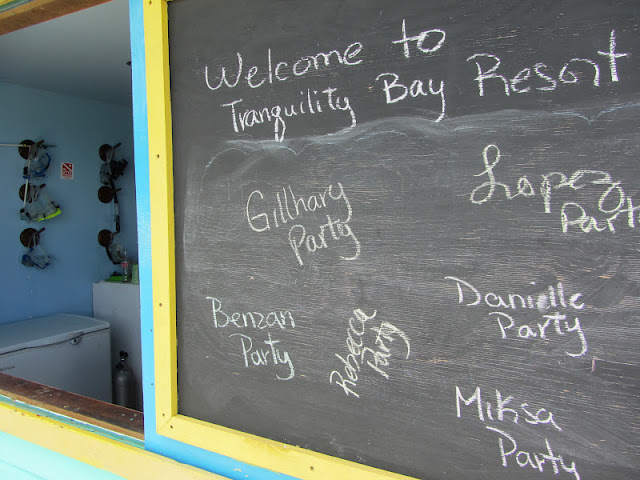 Welcome to
Tranquility Bay Resort
Gillhary
Party
Lopez
Party
Benzan
Party
Rebecca
Party
Danielle
Party
Miksa
Party